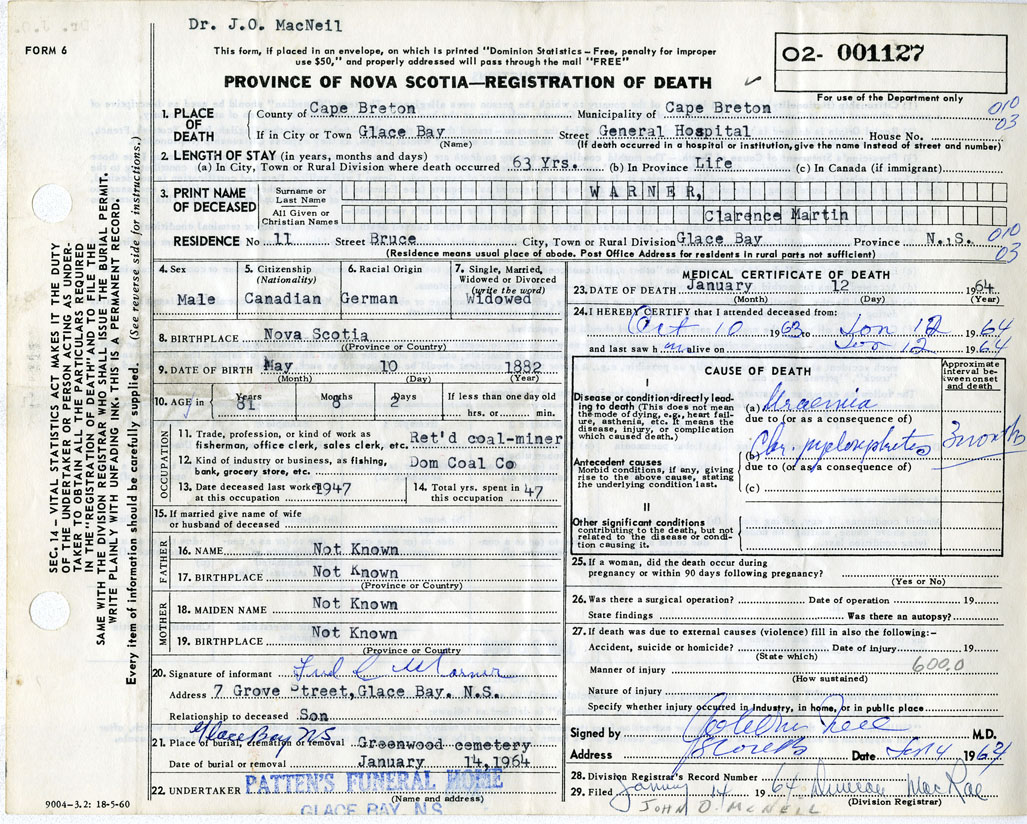 Dr. J.O. MacNeil
FORM 6
This form, if placed in an envelope, on which is printed "Dominion Statistics – Free, penalty for improper
use $50," and properly addressed will pass through the mail "FREE"
O2- 001127
PROVINCE OF NOVA SCOTIA—REGISTRATION OF DEATH
For use of the Department only
1. PLACE OF DEATH
County of Cape Breton Municipality of Cape Breton
010
03
If in City or Town Glace Bay Street General Hospital House No.
(Name) (If death occurred in a hospital or institution, give the name instead of street and number)
2. LENGTH OF STAY (in years, months and days)
(a) In City, Town or Rural Division where death occurred 63 Yrs. (b) In Province Life (c) In Canada (if immigrant)
3. PRINT NAME OF DECEASED
Surname or Last Name WARNER,
All Given or Christian Names Clarence Martin
RESIDENCE No 11 Street Bruce City, Town or Rural Division Glace Bay Province N.S.
010
03
(Residence means usual place of abode. Post Office Address for residents in rural parts not sufficient)
4. Sex
Male
5. Citizenship
(Nationality)
Canadian
6. Racial Origin
German
7. Single, Married,
Widowed or Divorced
(write the word)
Widowed
8. BIRTHPLACE Nova Scotia
(Province or Country)
9. DATE OF BIRTH May 10 1882
(Month) (Day) (Year)
10. AGE Years Months Days If less than one day old
81 8 2 hrs. or min.
OCCUPATION
11. Trade, profession, or kind of work as
fisherman, office clerk, sales clerk, etc. Ret'd coal-miner
12. Kind of industry or business, as fishing,
bank, grocery store, etc. Dom Coal Co
13. Date deceased last worked
at this occupation 1947
14. Total yrs. spent in
this occupation 47
15. If married give name of wife
or husband of deceased
FATHER
16. NAME Not Known
17. BIRTHPLACE Not Known
(Province or Country)
MOTHER
18. MAIDEN NAME Not Known
19. BIRTHPLACE Not Known
(Province or Country)
20. Signature of informant Warner
Address 7 Grove Street, Glace Bay. N.S.
Relationship to deceased Son
Glace Bay NS
21. Place of burial, cremation or removal Greenwood cemetery
Date of burial or removal January 14, 1964
22. UNDERTAKER PATTEN'S FUNERAL HOME
(Name and address)
GLACE BAY, N.S.
9004-3.2: 18-5-60
MEDICAL CERTIFICATE OF DEATH
23. DATE OF DEATH January 12 1964
(Month) (Day) (Year)
24. I HEREBY CERTIFY that I attended deceased from:
Oct 10 1963 to Jan 12 1964
and last saw him alive on Jan 12 1964
CAUSE OF DEATH
Approximate
interval between onset
and death
I
Disease or condition directly leading
to death (This does not mean
the mode of dying, e.g., heart failure,
asthenia, etc. It means the
disease, injury, or complication
which caused death.)
(a) Uraemia
due to (or as a consequence of)
(b) Chr. pyelonephritis 3 months
due to (or as a consequence of)
Antecedent causes
Morbid conditions, if any, giving
rise to the above cause, stating
the underlying condition last.
(c)
II
Other significant conditions
contributing to the death, but not
related to the disease or condition
causing it.
25. If a woman, did the death occur during
pregnancy or within 90 days following pregnancy?
(Yes or No)
26. Was there a surgical operation? Date of operation 19
State findings Was there an autopsy?
27. If death was due to external causes (violence) fill in also the following:–
Accident, suicide or homicide? Date of injury 19
(State which)
600.0
Manner of injury
(How sustained)
Nature of injury
Specify whether injury occurred in industry, in home, or in public place
Signed by M.D.
Address Date Jan 14 1964
28. Division Registrar's Record Number
29. Filed January 14 1964 Duncan MacRae
(Division Registrar)
JOHN O. MCNEIL
SEC. 14 – VITAL STATISTICS ACT MAKES IT THE DUTY
OF THE UNDERTAKER OR PERSON ACTING AS UNDERTAKER
TO OBTAIN ALL THE PARTICULARS REQUIRED
IN THE "REGISTRATION OF DEATH" AND TO FILE THE
SAME WITH THE DIVISION REGISTRAR WHO SHALL ISSUE THE BURIAL PERMIT.
WRITE PLAINLY WITH UNFADING INK. THIS IS A PERMANENT RECORD.
Every item of information should be carefully supplied. (See reverse side for instructions.)